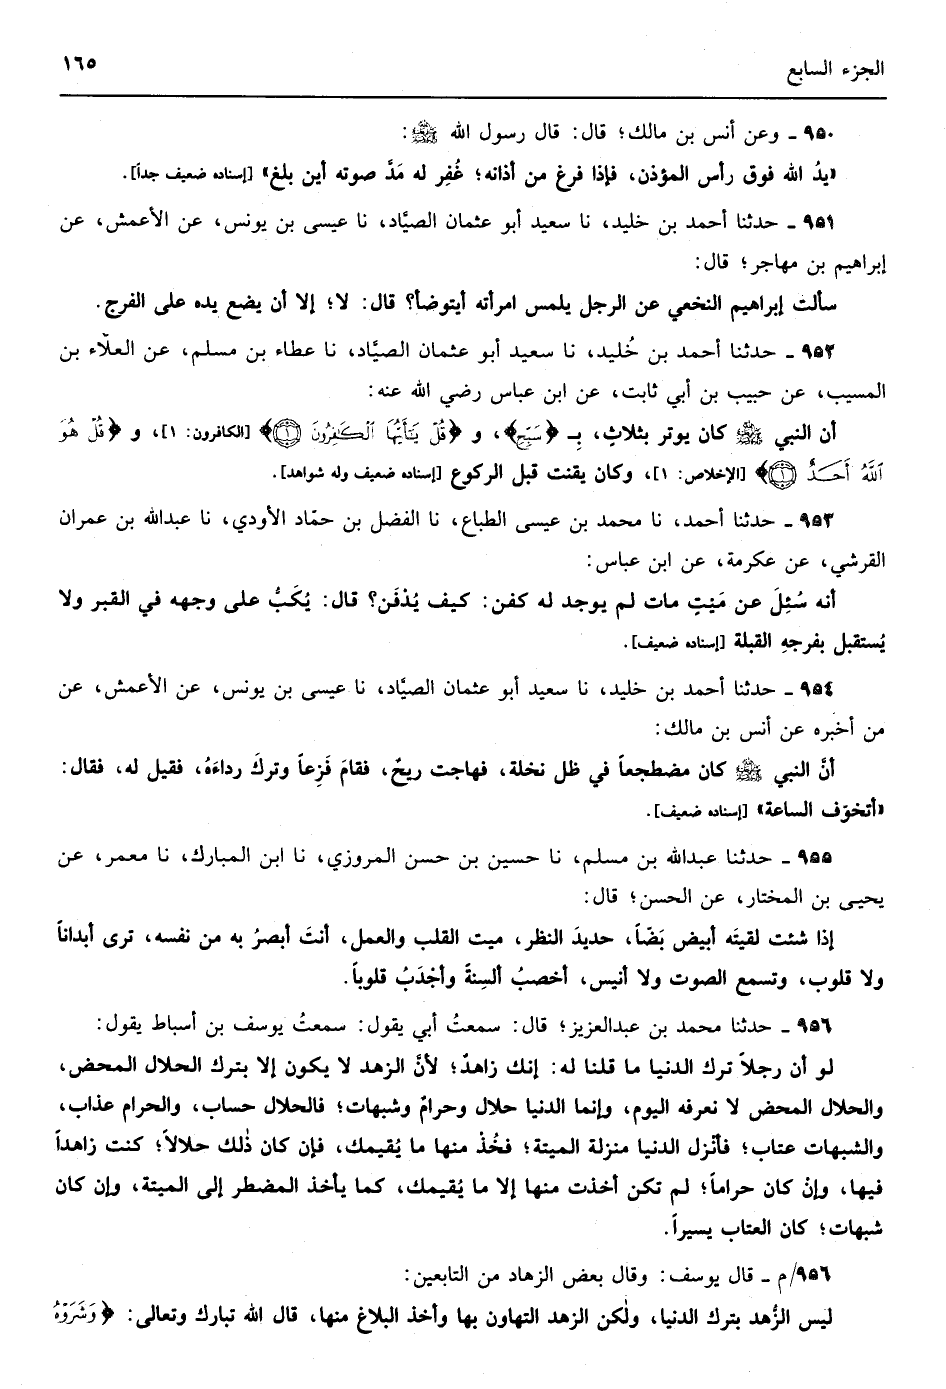 الجزء السابع
١٦٥
٩٥٠ ـ وعن أنس بن مالك؛ قال: قال رسول الله ﷺ:
«يدُ الله فوق رأس المؤذن، فإذا فرغ من أذانه؛ غُفِر له مَدَّ صوته أين بلغ» [إسناده ضعيف جداً].
٩٥١ ـ حدثنا أحمد بن خليد، نا سعيد أبو عثمان الصيَّاد، نا عيسى بن يونس، عن الأعمش، عن
إبراهيم بن مهاجر؛ قال:
سألت إبراهيم النخعي عن الرجل يلمس امرأته أيتوضأ؟ قال: لا؛ إلا أن يضع يده على الفرج.
٩٥٢ ـ حدثنا أحمد بن خُليد، نا سعيد أبو عثمان الصيَّاد، نا عطاء بن مسلم، عن العلّاء بن
المسيب، عن حبيب بن أبي ثابت، عن ابن عباس رضي الله عنه:
أن النبي ﷺ كان يوتر بثلاث، بـ ﴿سَبِّحِ﴾، و ﴿قُلْ يَٰٓأَيُّهَا ٱلْكَٰفِرُونَ ۝١﴾ [الكافرون: ١]، و ﴿قُلْ هُوَ
ٱللَّهُ أَحَدٌ ۝١﴾ [الإخلاص: ١]، وكان يقنت قبل الركوع [إسناده ضعيف وله شواهد].
٩٥٣ ـ حدثنا أحمد، نا محمد بن عيسى الطباع، نا الفضل بن حمّاد الأودي، نا عبدالله بن عمران
القرشي، عن عكرمة، عن ابن عباس:
أنه سُئِلَ عن مَيِّتٍ مات لم يوجد له كفن: كيف يُدْفَن؟ قال: يُكَبُّ على وجهه في القبر ولا
يُستقبل بفرجهِ القبلة [إسناده ضعيف].
٩٥٤ ـ حدثنا أحمد بن خليد، نا سعيد أبو عثمان الصيَّاد، نا عيسى بن يونس، عن الأعمش، عن
من أخبره عن أنس بن مالك:
أنَّ النبي ﷺ كان مضطجعاً في ظل نخلة، فهاجت ريحٌ، فقامَ فَزِعاً وتركَ رداءَهُ، فقيل له، فقال:
«أتخوّف الساعة» [إسناده ضعيف].
٩٥٥ ـ حدثنا عبدالله بن مسلم، نا حسين بن حسن المروزي، نا ابن المبارك، نا معمر، عن
يحيى بن المختار، عن الحسن؛ قال:
إذا شئت لقيتَه أبيض بَضّاً، حديدَ النظر، ميت القلب والعمل، أنتَ أبصرُ به من نفسه، ترى أبداناً
ولا قلوب، وتسمع الصوت ولا أنيس، أخصبُ ألسِنةً وأجْدَبُ قلوباً.
٩٥٦ ـ حدثنا محمد بن عبدالعزيز؛ قال: سمعتُ أبي يقول: سمعتُ يوسف بن أسباط يقول:
لو أن رجلاً ترك الدنيا ما قلنا له: إنك زاهدٌ؛ لأنَّ الزهد لا يكون إلا بترك الحلال المحض،
والحلال المحض لا نعرفه اليوم، وإنما الدنيا حلال وحرامٌ وشبهات؛ فالحلال حساب، والحرام عذاب،
والشبهات عتاب؛ فأنْزل الدنيا منزلة الميتة؛ فخُذْ منها ما يُقيمك، فإن كان ذٰلك حلالاً؛ كنت زاهداً
فيها، وإنْ كان حراماً؛ لم تكن أخذت منها إلا ما يُقيمك، كما يأخذ المضطر إلى الميتة، وإن كان
شبهات؛ كان العتاب يسيراً.
٩٥٦/م ـ قال يوسف: وقال بعض الزهاد من التابعين:
ليس الزُّهد بترك الدنيا، ولٰكن الزهد التهاون بها وأخذ البلاغ منها، قال الله تبارك وتعالى: ﴿وَشَرَوْهُ